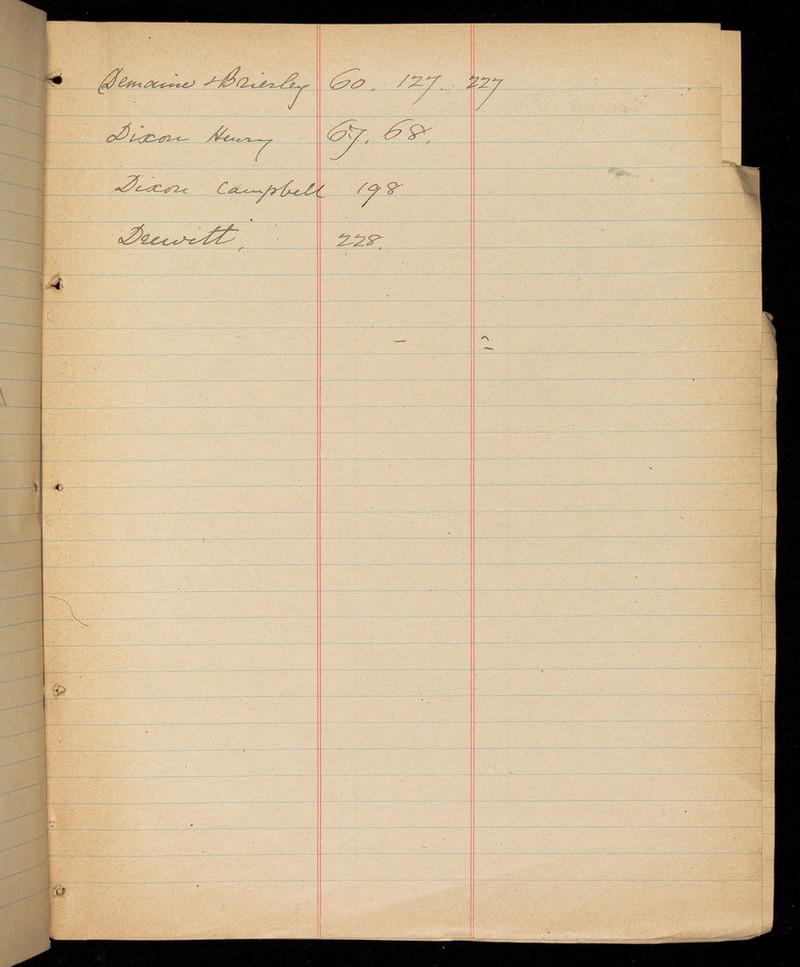 Demaine & Brierley 60. 127. 227
Dixon Henry 67. 68.
Dixon Campbell 198
Drewitt. 228.